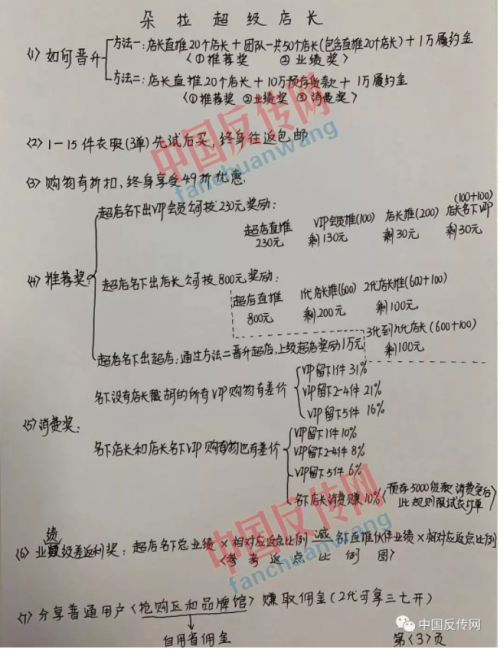 朵拉超级店长
(1) 如何晋升
方法一:店长直推20个店长+团队一共50个店长(包含直推20个店长)+1万履约金
(①推荐奖 ②业绩奖)
方法二:店长直推20个店长+10万预存货款+1万履约金
(①推荐奖 ②业绩奖 ③消费奖)
(2) 1-15件衣服(3单)先试后买,终身往返包邮
(3) 购物有折扣,终身享受49折优惠.
(4) 推荐奖
超店名下出VIP会员公司按230元奖励:
超店直推
230元
VIP会员推(100)
剩130元
店长推(200)
剩30元
(100+100)
店长名下VIP
剩30元
超店名下出店长公司按800元奖励:
超店直推
800元
1代店长推(600)
剩200元
2代店长推(600+100)
剩100元
3代到N代店长(600+100)
剩100元
超店名下出超店:通过方法二晋升超店,上级超店奖励1万元
(5) 消费奖:
名下没有店长戴胡的所有VIP购物有差价
VIP留下1件 31%
VIP留下2-4件 21%
VIP留下5件 16%
名下店长和店长名下VIP购物也有差价
VIP留下1件 10%
VIP留下2-4件 8%
VIP留下5件 6%
名下店长消费赚10%
(预存5000货款消费完后
此规则服试衣订单)
(6) 业绩级差返利奖:超店名下总业绩×相对应返点比例 减 名下直推伙伴业绩×相对应返点比例
(参考返点比例图)
(7) 分享普通用户(抢购区和品牌馆)赚取佣金(2代可享三七开)
自用省佣金
第(3)页
中国反传网
fanchuanwang
中国反传网
fanchuanwang
中国反传网